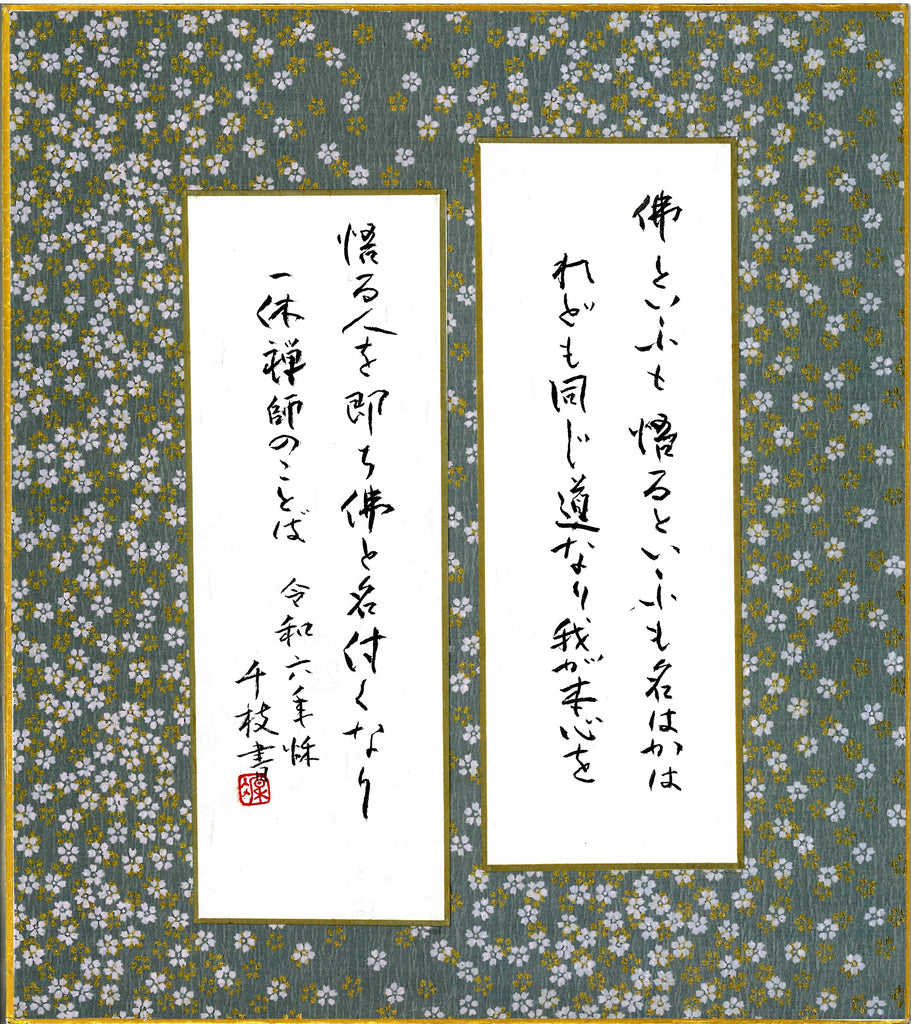 佛といふも悟るといふも名はかは
れども同じ道なり我が本心を
悟る人を即ち佛と名付くなり
一休禅師のことば
令和六年秋
千枝書